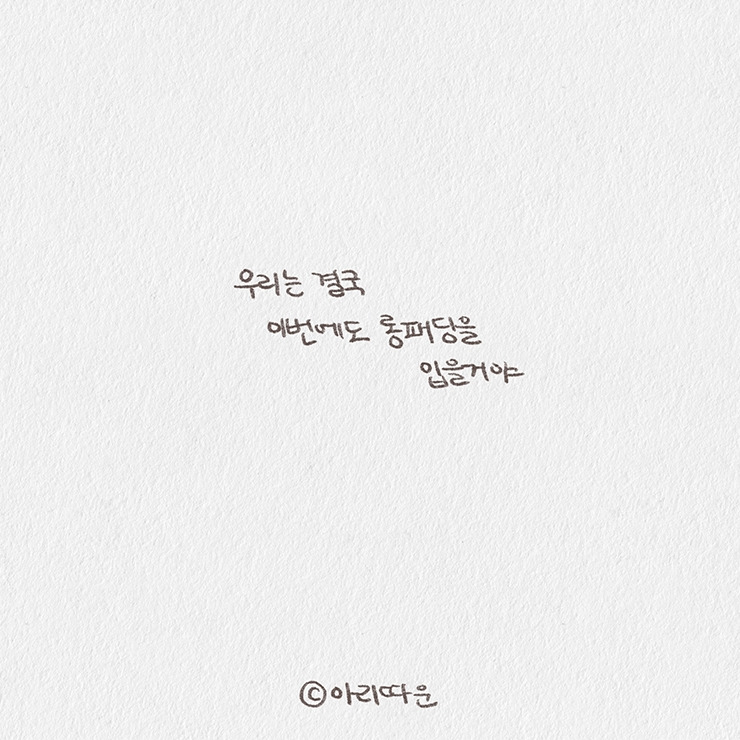 우리는 결국
이번에도 롱패딩을
입을거야
©아리따운